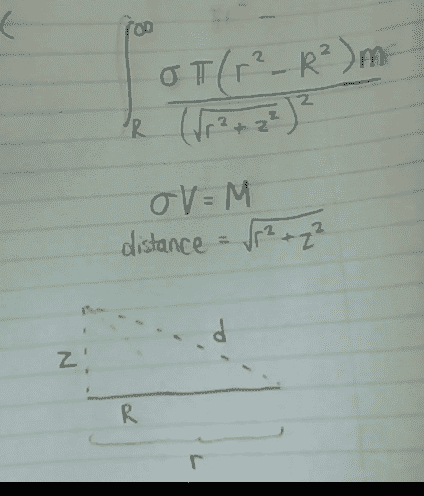 (
∫_R^∞ σπ(r² - R²)m / (√(r² + z²))²
σV = M
distance = √(r² + z²)
d
z
R
r